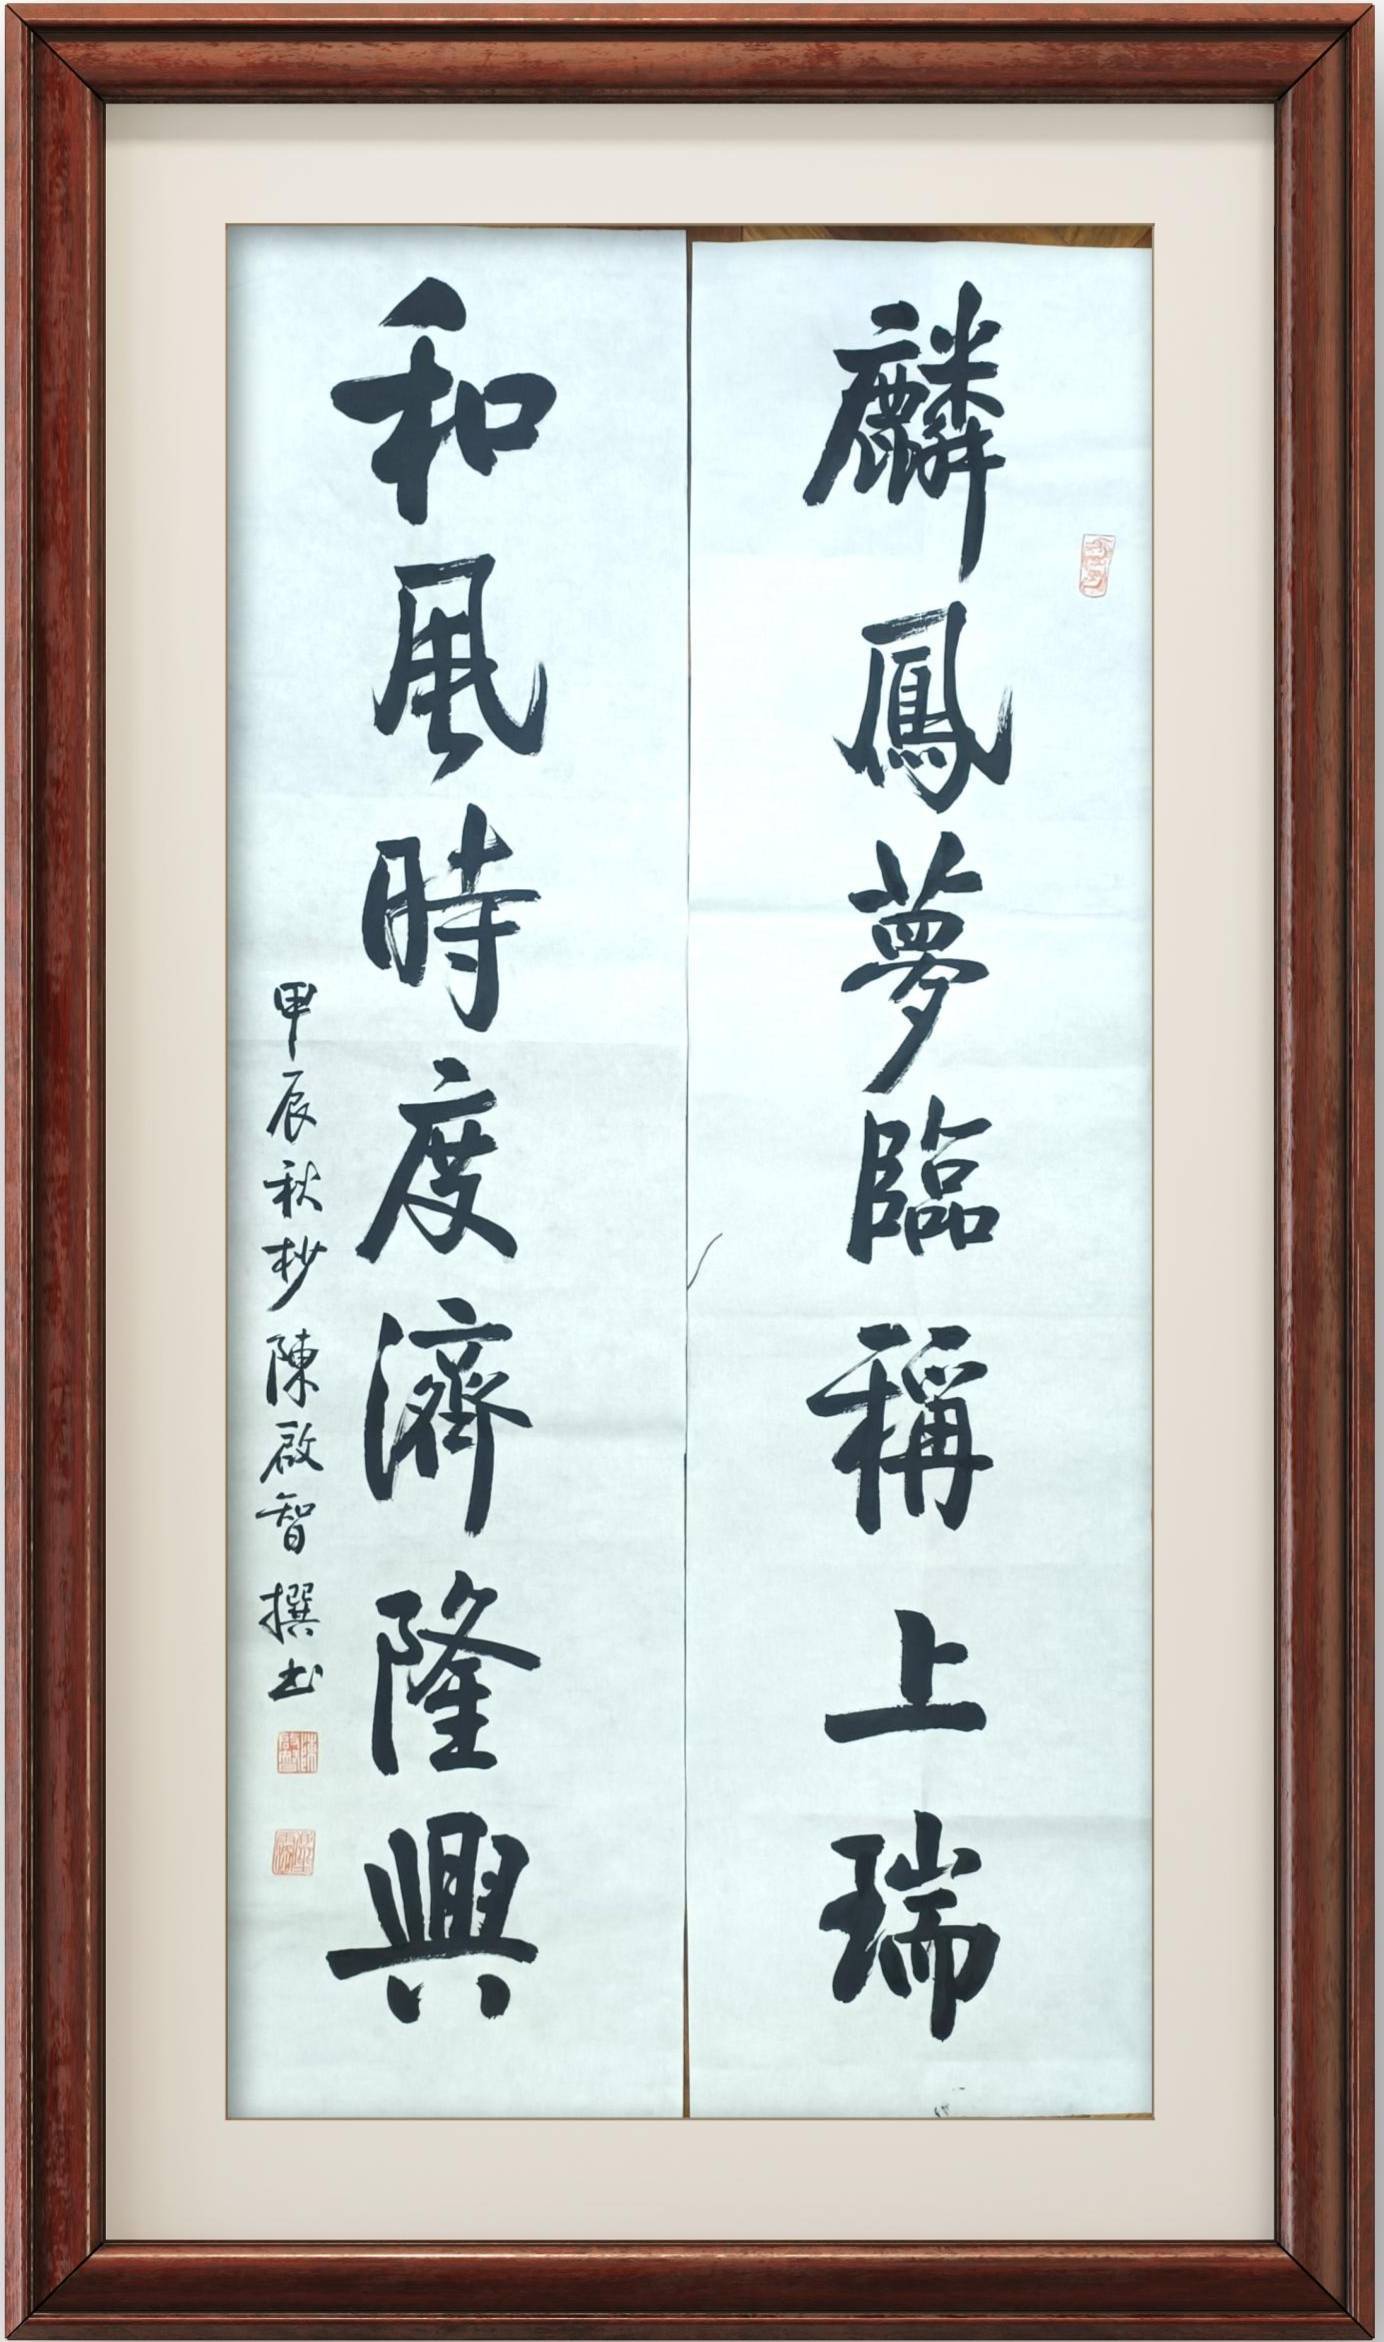 麟鳳夢臨稱上瑞
和風時度濟隆興
甲辰秋杪陳啟智撰书